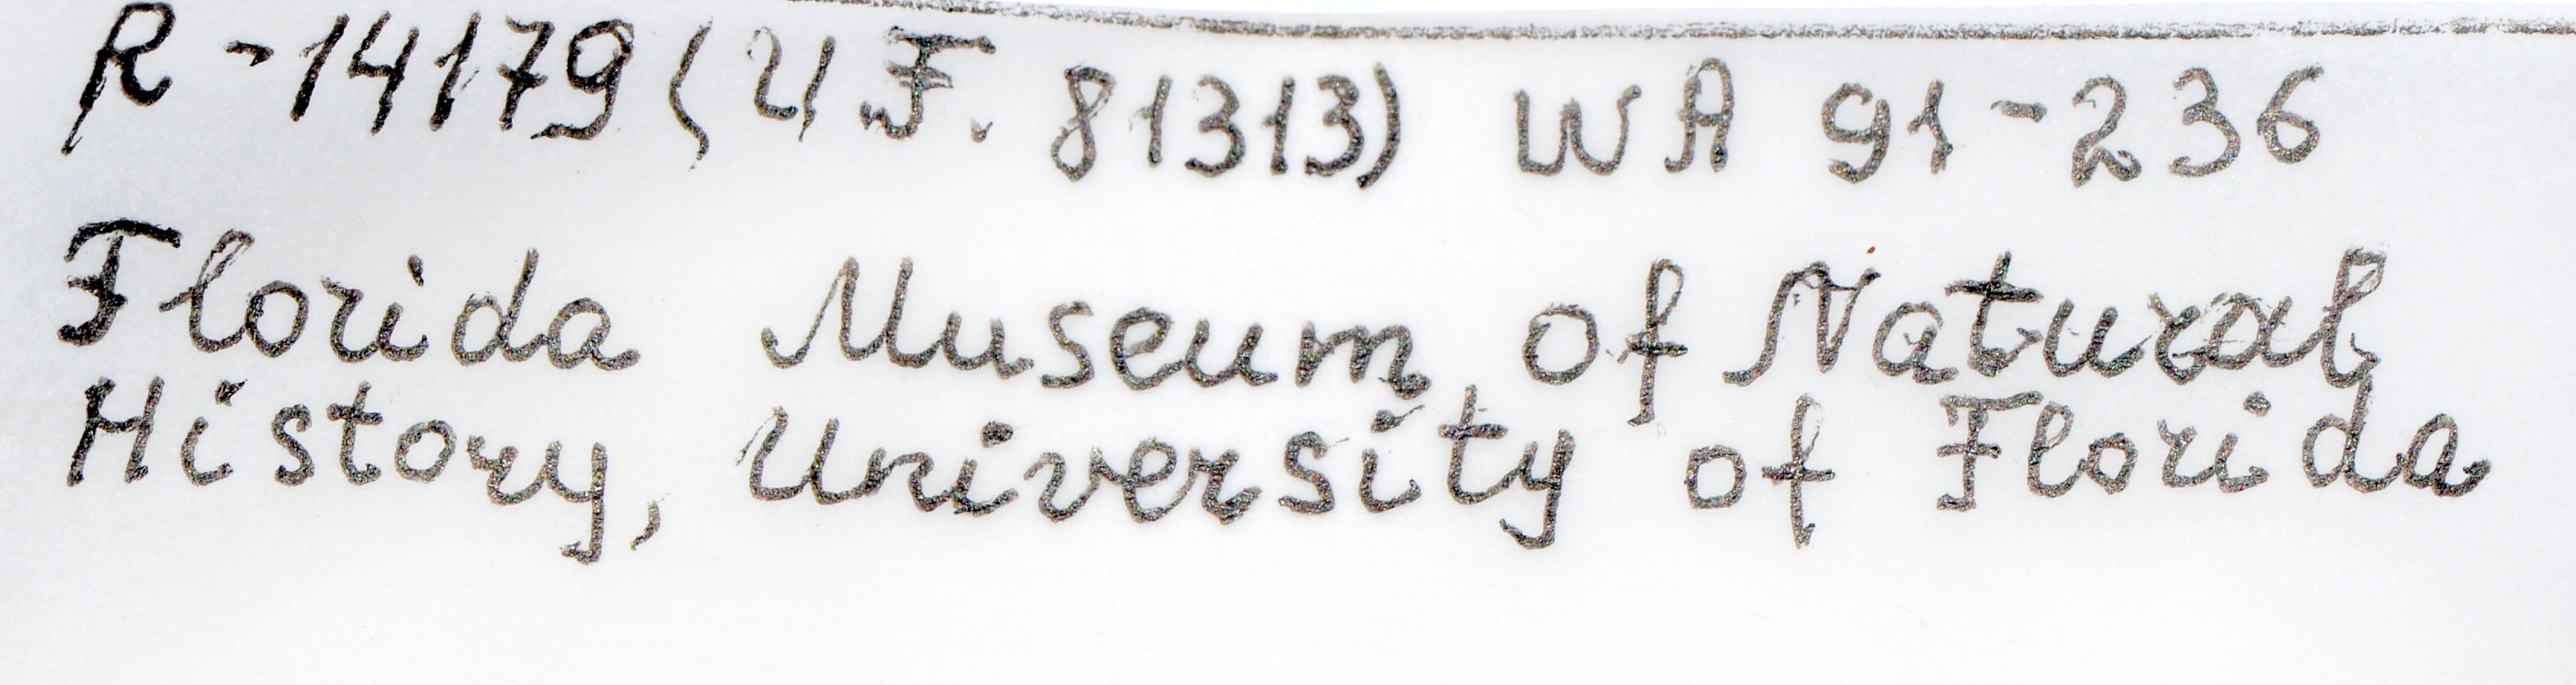 R-14179 (U F. 81313) WA 91-236
Florida Museum of Natural
History, University of Florida